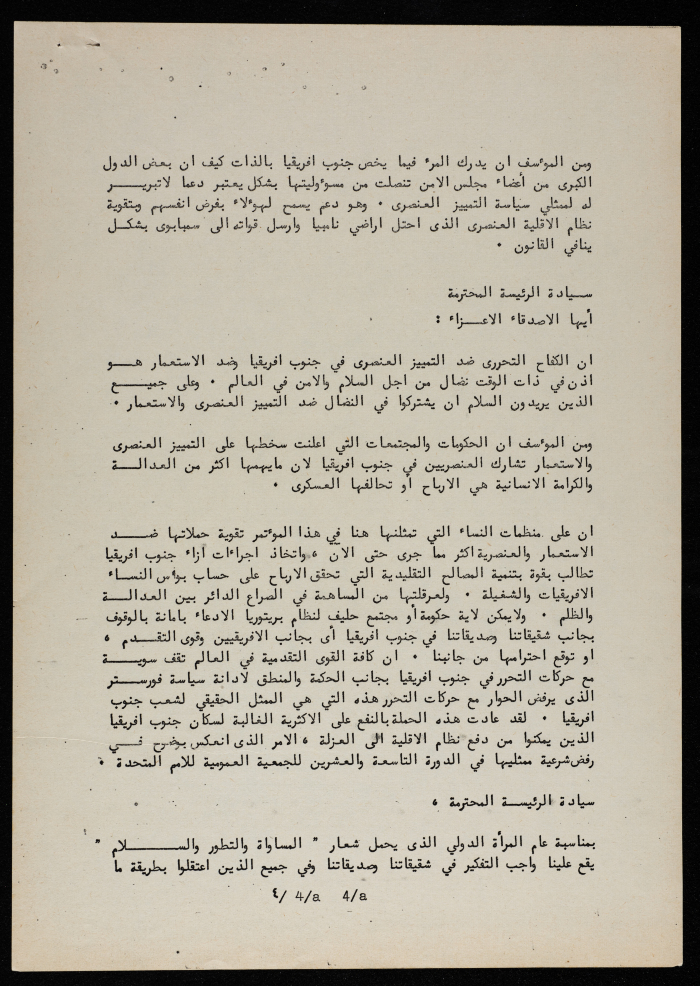 ومن المؤسف ان يدرك المرء فيما يخص جنوب افريقيا بالذات كيف ان بعض الدول
الكبرى من أعضاء مجلس الامن تنصلت من مسوءوليتها بشكل يعتبر دعما لاتبرير
له لممثلي سياسة التمييز العنصرى . وهو دعم يسمح لهوءلاء بفرض انفسهم وبتقوية
نظام الاقلية العنصرى الذى احتل اراضي نامبيا وارسل قواته الى سمبابوى بشكل
ينافي القانون .
سيادة الرئيسة المحترمة
أيها الاصدقاء الاعزاء :
ان الكفاح التحررى ضد التمييز العنصرى في جنوب افريقيا وضد الاستعمار هو
اذن في ذات الوقت نضال من اجل السلام والامن في العالم . وعلى جميع
الذين يريدون السلام ان يشتركوا في النضال ضد التمييز العنصرى والاستعمار .
ومن الموءسف ان الحكومات والمجتمعات التي اعلنت سخطها على التمييز العنصرى
والاستعمار تشارك العنصريين في جنوب افريقيا لان مايهمها اكثر من العدالة
والكرامة الانسانية هي الارباح أو تحالفها العسكرى .
ان على منظمات النساء التي تمثلنها هنا في هذا الموءتمر تقوية حملاتها ضد
الاستعمار والعنصرية اكثر مما جرى حتى الان ، واتخاذ اجراءات ازاء جنوب افريقيا
تطالب بقوة بتنمية المصالح التقليدية التي تحقق الارباح على حساب بوءس النساء
الافريقيات والشغيلة . ولعرقلتها من المساهمة في الصراع الدائر بين العدالة
والظلم . ولايمكن لاية حكومة أو مجتمع حليف لنظام بريتوريا الادعاء بامانة بالوقوف
بجانب شقيقاتنا وصديقاتنا في جنوب افريقيا أى بجانب الافريقيين وقوى التقدم ،
او توقع احترامها من جانبنا . ان كافة القوى التقدمية في العالم تقف سوية
مع حركات التحرر في جنوب افريقيا بجانب الحكمة والمنطق لادانة سياسة فورستر
الذى يرفض الحوار مع حركات التحرر هذه التي هي الممثل الحقيقي لشعب جنوب
افريقيا . لقد عادت هذه الحملة بالنفع على الاكثرية الغالبة لسكان جنوب افريقيا
الذين يمكنوا من دفع نظام الاقلية الى العزلة ، الامر الذى انعكس بوضوح في
رفض شرعية ممثليها في الدورة التاسعة والعشرين للجمعية العمومية للامم المتحدة .
سيادة الرئيسة المحترمة ،
بمناسبة عام المرأة الدولي الذى يحمل شعار " المساواة والتطور والسلام "
يقع علينا واجب التفكير في شقيقاتنا وصديقاتنا وفي جميع الذين اعتقلوا بطريقة ما
٤/ 4/a 4/a